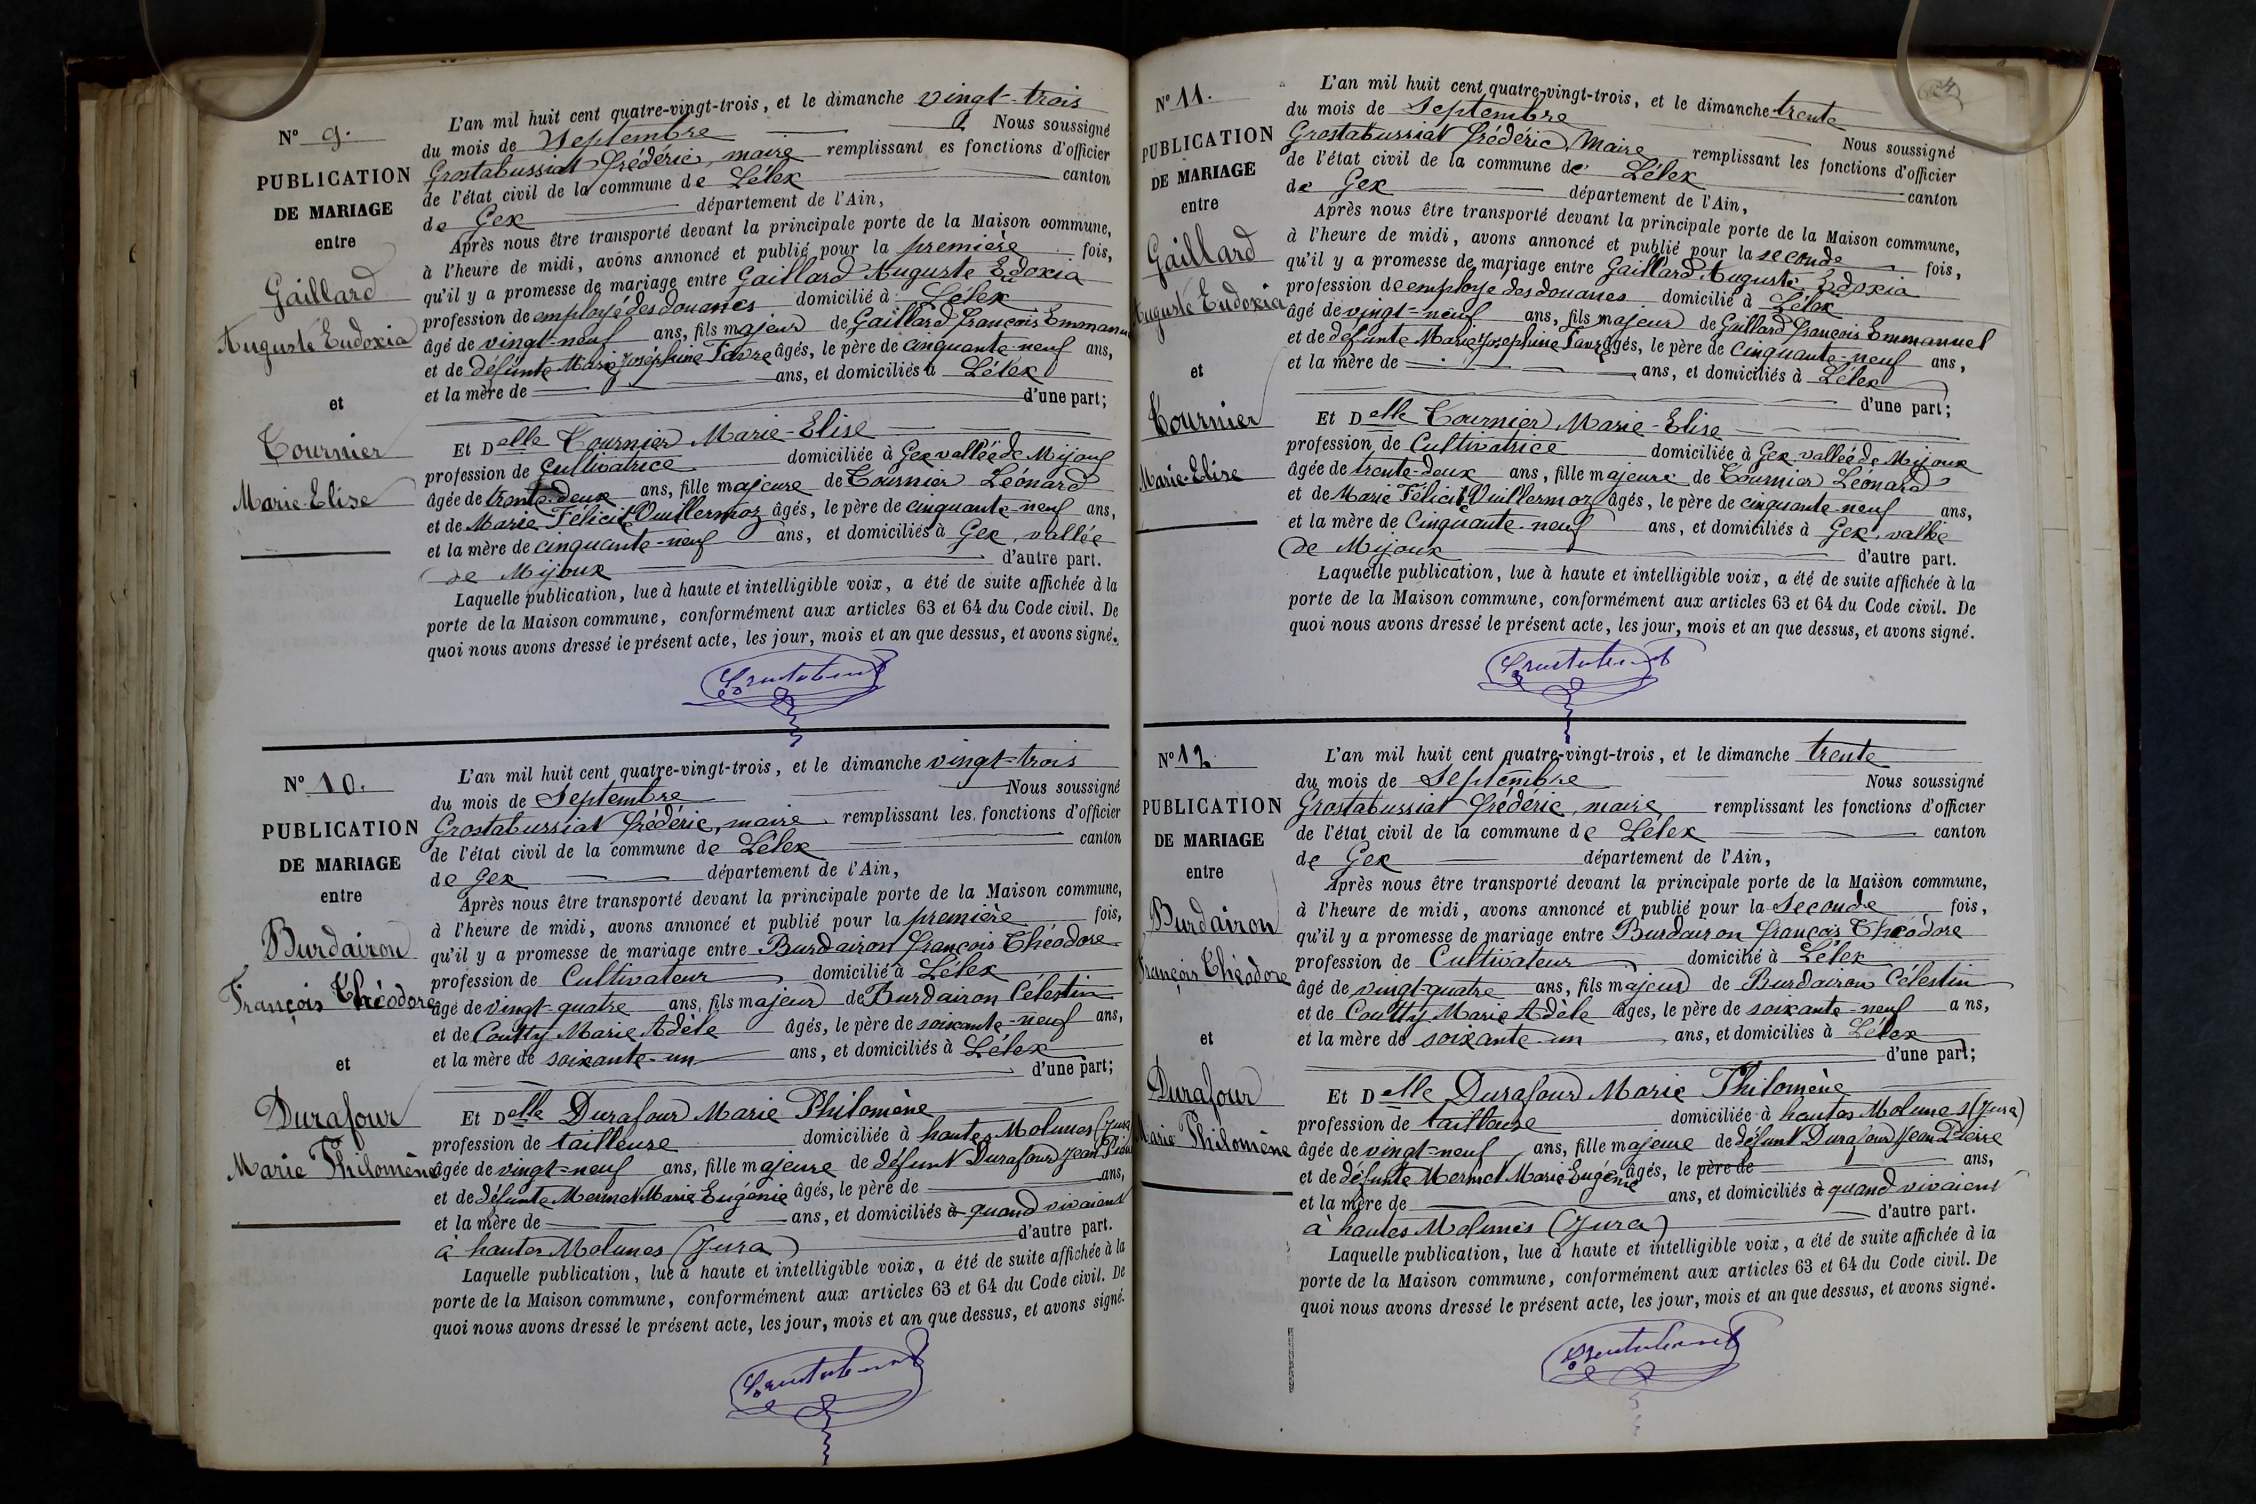 N° 9.
PUBLICATION
DE MARIAGE
entre
Gaillard
Auguste Eudoxia
et
Tournier
Marie-Elise
L'an mil huit cent quatre-vingt-trois, et le dimanche vingt-trois
du mois de Septembre Nous soussigné
Grostabussiat Frédéric, maire remplissant es fonctions d'officier
de l'état civil de la commune de Lélex canton
de Gex département de l'Ain,
Après nous être transporté devant la principale porte de la Maison commune,
à l'heure de midi, avons annoncé et publié pour la première fois,
qu'il y a promesse de mariage entre Gaillard Auguste Edoxia
profession de employé des douanes domicilié à Lélex
âgé de vingt-neuf ans, fils majeur de Gaillard François Emmanu
et de défunte Marie Joséphine Favre âgés, le père de cinquante-neuf ans,
et la mère de ans, et domiciliés à Lélex
d'une part;
Et Delle Tournier Marie-Elise
profession de Cultivatrice domiciliée à Gex vallée de Mijoux
âgée de trente-deux ans, fille majeure de Tournier Léonard
et de Marie Félicité Vuillermoz âgés, le père de cinquante-neuf ans,
et la mère de cinquante-neuf ans, et domiciliés à Gex, vallée
de Mijoux d'autre part.
Laquelle publication, lue à haute et intelligible voix, a été de suite affichée à la
porte de la Maison commune, conformément aux articles 63 et 64 du Code civil. De
quoi nous avons dressé le présent acte, les jour, mois et an que dessus, et avons signé.
N° 10.
PUBLICATION
DE MARIAGE
entre
Burdairon
François Théodore
et
Durafour
Marie Philomène
L'an mil huit cent quatre-vingt-trois, et le dimanche vingt-trois
du mois de Septembre Nous soussigné
Grostabussiat Frédéric, maire remplissant les fonctions d'officier
de l'état civil de la commune de Lélex canton
de Gex département de l'Ain,
Après nous être transporté devant la principale porte de la Maison commune,
à l'heure de midi, avons annoncé et publié pour la première fois,
qu'il y a promesse de mariage entre Burdairon François Théodore
profession de Cultivateur domicilié à Lélex
âgé de vingt-quatre ans, fils majeur de Burdairon Célestin
et de Coutty Marie Adèle âgés, le père de soixante-neuf ans,
et la mère de soixante-un ans, et domiciliés à Lélex
d'une part;
Et Delle Durafour Marie Philomène
profession de tailleuse domiciliée à hautes Molunes (Jura
âgée de vingt-neuf ans, fille majeure de défunt Durafour Jean Pier
et de défunte Mermet Marie Eugénie âgés, le père de ans,
et la mère de ans, et domiciliés à quand vivaient
à hautes Molunes (Jura) d'autre part.
Laquelle publication, lue à haute et intelligible voix, a été de suite affichée à la
porte de la Maison commune, conformément aux articles 63 et 64 du Code civil. De
quoi nous avons dressé le présent acte, les jour, mois et an que dessus, et avons signé.
N° 11.
PUBLICATION
DE MARIAGE
entre
Gaillard
Auguste Eudoxia
et
Tournier
Marie-Elise
L'an mil huit cent quatre-vingt-trois, et le dimanche trente
du mois de Septembre Nous soussigné
Grostabussiat Frédéric, Maire remplissant les fonctions d'officier
de l'état civil de la commune de Lélex canton
de Gex département de l'Ain,
Après nous être transporté devant la principale porte de la Maison commune,
à l'heure de midi, avons annoncé et publié pour la seconde fois,
qu'il y a promesse de mariage entre Gaillard Auguste Edoxia
profession de employé des douanes domicilié à Lélex
âgé de vingt-neuf ans, fils majeur de Gaillard François Emmanuel
et de défunte Marie Joséphine Favre âgés, le père de cinquante-neuf ans,
et la mère de ans, et domiciliés à Lélex
d'une part;
Et Delle Tournier Marie-Elise
profession de Cultivatrice domiciliée à Gex, vallée de Mijoux
âgée de trente-deux ans, fille majeure de Tournier Léonard
et de Marie Félicité Vuillermoz âgés, le père de cinquante-neuf ans,
et la mère de Cinquante-neuf ans, et domiciliés à Gex, vallée
de Mijoux d'autre part.
Laquelle publication, lue à haute et intelligible voix, a été de suite affichée à la
porte de la Maison commune, conformément aux articles 63 et 64 du Code civil. De
quoi nous avons dressé le présent acte, les jour, mois et an que dessus, et avons signé.
N° 12.
PUBLICATION
DE MARIAGE
entre
Burdairon
François Théodore
et
Durafour
Marie Philomène
L'an mil huit cent quatre-vingt-trois, et le dimanche trente
du mois de Septembre Nous soussigné
Grostabussiat Frédéric, maire remplissant les fonctions d'officier
de l'état civil de la commune de Lélex canton
de Gex département de l'Ain,
Après nous être transporté devant la principale porte de la Maison commune,
à l'heure de midi, avons annoncé et publié pour la Seconde fois,
qu'il y a promesse de mariage entre Burdairon François Théodore
profession de Cultivateur domicilié à Lélex
âgé de vingt-quatre ans, fils majeur de Burdairon Célestin
et de Coutty Marie Adèle âgés, le père de soixante-neuf ans,
et la mère de soixante-un ans, et domiciliés à Lélex
d'une part;
Et Delle Durafour Marie Philomène
profession de tailleuse domiciliée à hautes Molunes (Jura)
âgée de vingt-neuf ans, fille majeure de défunt Durafour Jean Pierre
et de défunte Mermet Marie Eugénie âgés, le père de ans,
et la mère de ans, et domiciliés à quand vivaient
à hautes Molunes (Jura) d'autre part.
Laquelle publication, lue à haute et intelligible voix, a été de suite affichée à la
porte de la Maison commune, conformément aux articles 63 et 64 du Code civil. De
quoi nous avons dressé le présent acte, les jour, mois et an que dessus, et avons signé.